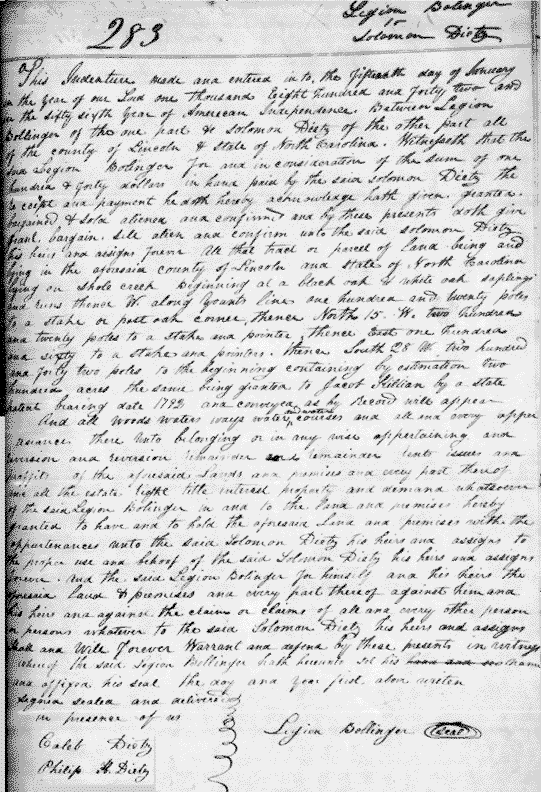 283
Legion Bolinger
to
Solomon Dietz
This Indenture made and entered in to, the fifteenth day of January
in the year of our Lord one thousand Eight hundred and forty two and
in the sixty sixth Year of American Independence. Between Legion
Bollinger of the one part & Solomon Dietz of the other part all
of the county of Lincoln & State of North Carolina. Witnesseth that the
said Legion Bolinger for and in consideration of the sum of one
hundred & forty dollars in hand paid by the said Solomon Dietz the
Receipt and payment he doth hereby acknowledge hath given, granted.
bargained & sold aliened and confirmd and by these presents doth give
grant, bargain. Sele alien and confirm unto the said Solomon Dietz
his heirs and assigns forever All that tract or parcel of land being and
lying in the aforesaid county of Lincoln and State of North Carolina
lying on Shole creek Beginning at a black oak & white oak saplings
and runs thence W. along Younts line one hundred and twenty poles
to a stake or post oak corner, thence North 15. W. two hundred
and twenty poles to a stake and pointer, thence East one hundred
and sixty to a stake and pointers. thence South 28 W. two hundred
and forty two poles to the beginning containing by estimation two
hundred acres the same being granted to Jacob Killian by a state
patent bearing date 1792 and conveyed as by Record will appear
And all woods waters ways water and water courses and all and every apper
tasunance there unto belonging or in any wise appertaining and
revision and reversion remainder and remainder rents issues and
profits of the aforesaid Lands and premises and every part thereof
and all the estate right title interest property and demand whatsoever
of the said Legion Bolinger in and to the land and premises hereby
granted to have and to hold the aforesaid Land and premises with the
appurtenances unto the said Solomon Dietz his heirs and assigns to
the proper use and behoof of the said Solomon Dietz his heirs and assigns
forever and the said Legion Bolinger for himself and his heirs the
aforesaid Land & premises and every part thereof against him and
his heirs and against the claim or claims of all and every other person
or persons whatever to the said Solomon Dietz his heirs and assigns
shall and Will Forever Warrant and defend by these presents in witness
whereof the said Legion Bollinger hath hereunto set his hand and
and affixed his seal the day and year first above writen
Signed sealed and delivered
in presence of us
Legion Bollinger (Seal)
Caleb Dietz
Philip H. Dietz